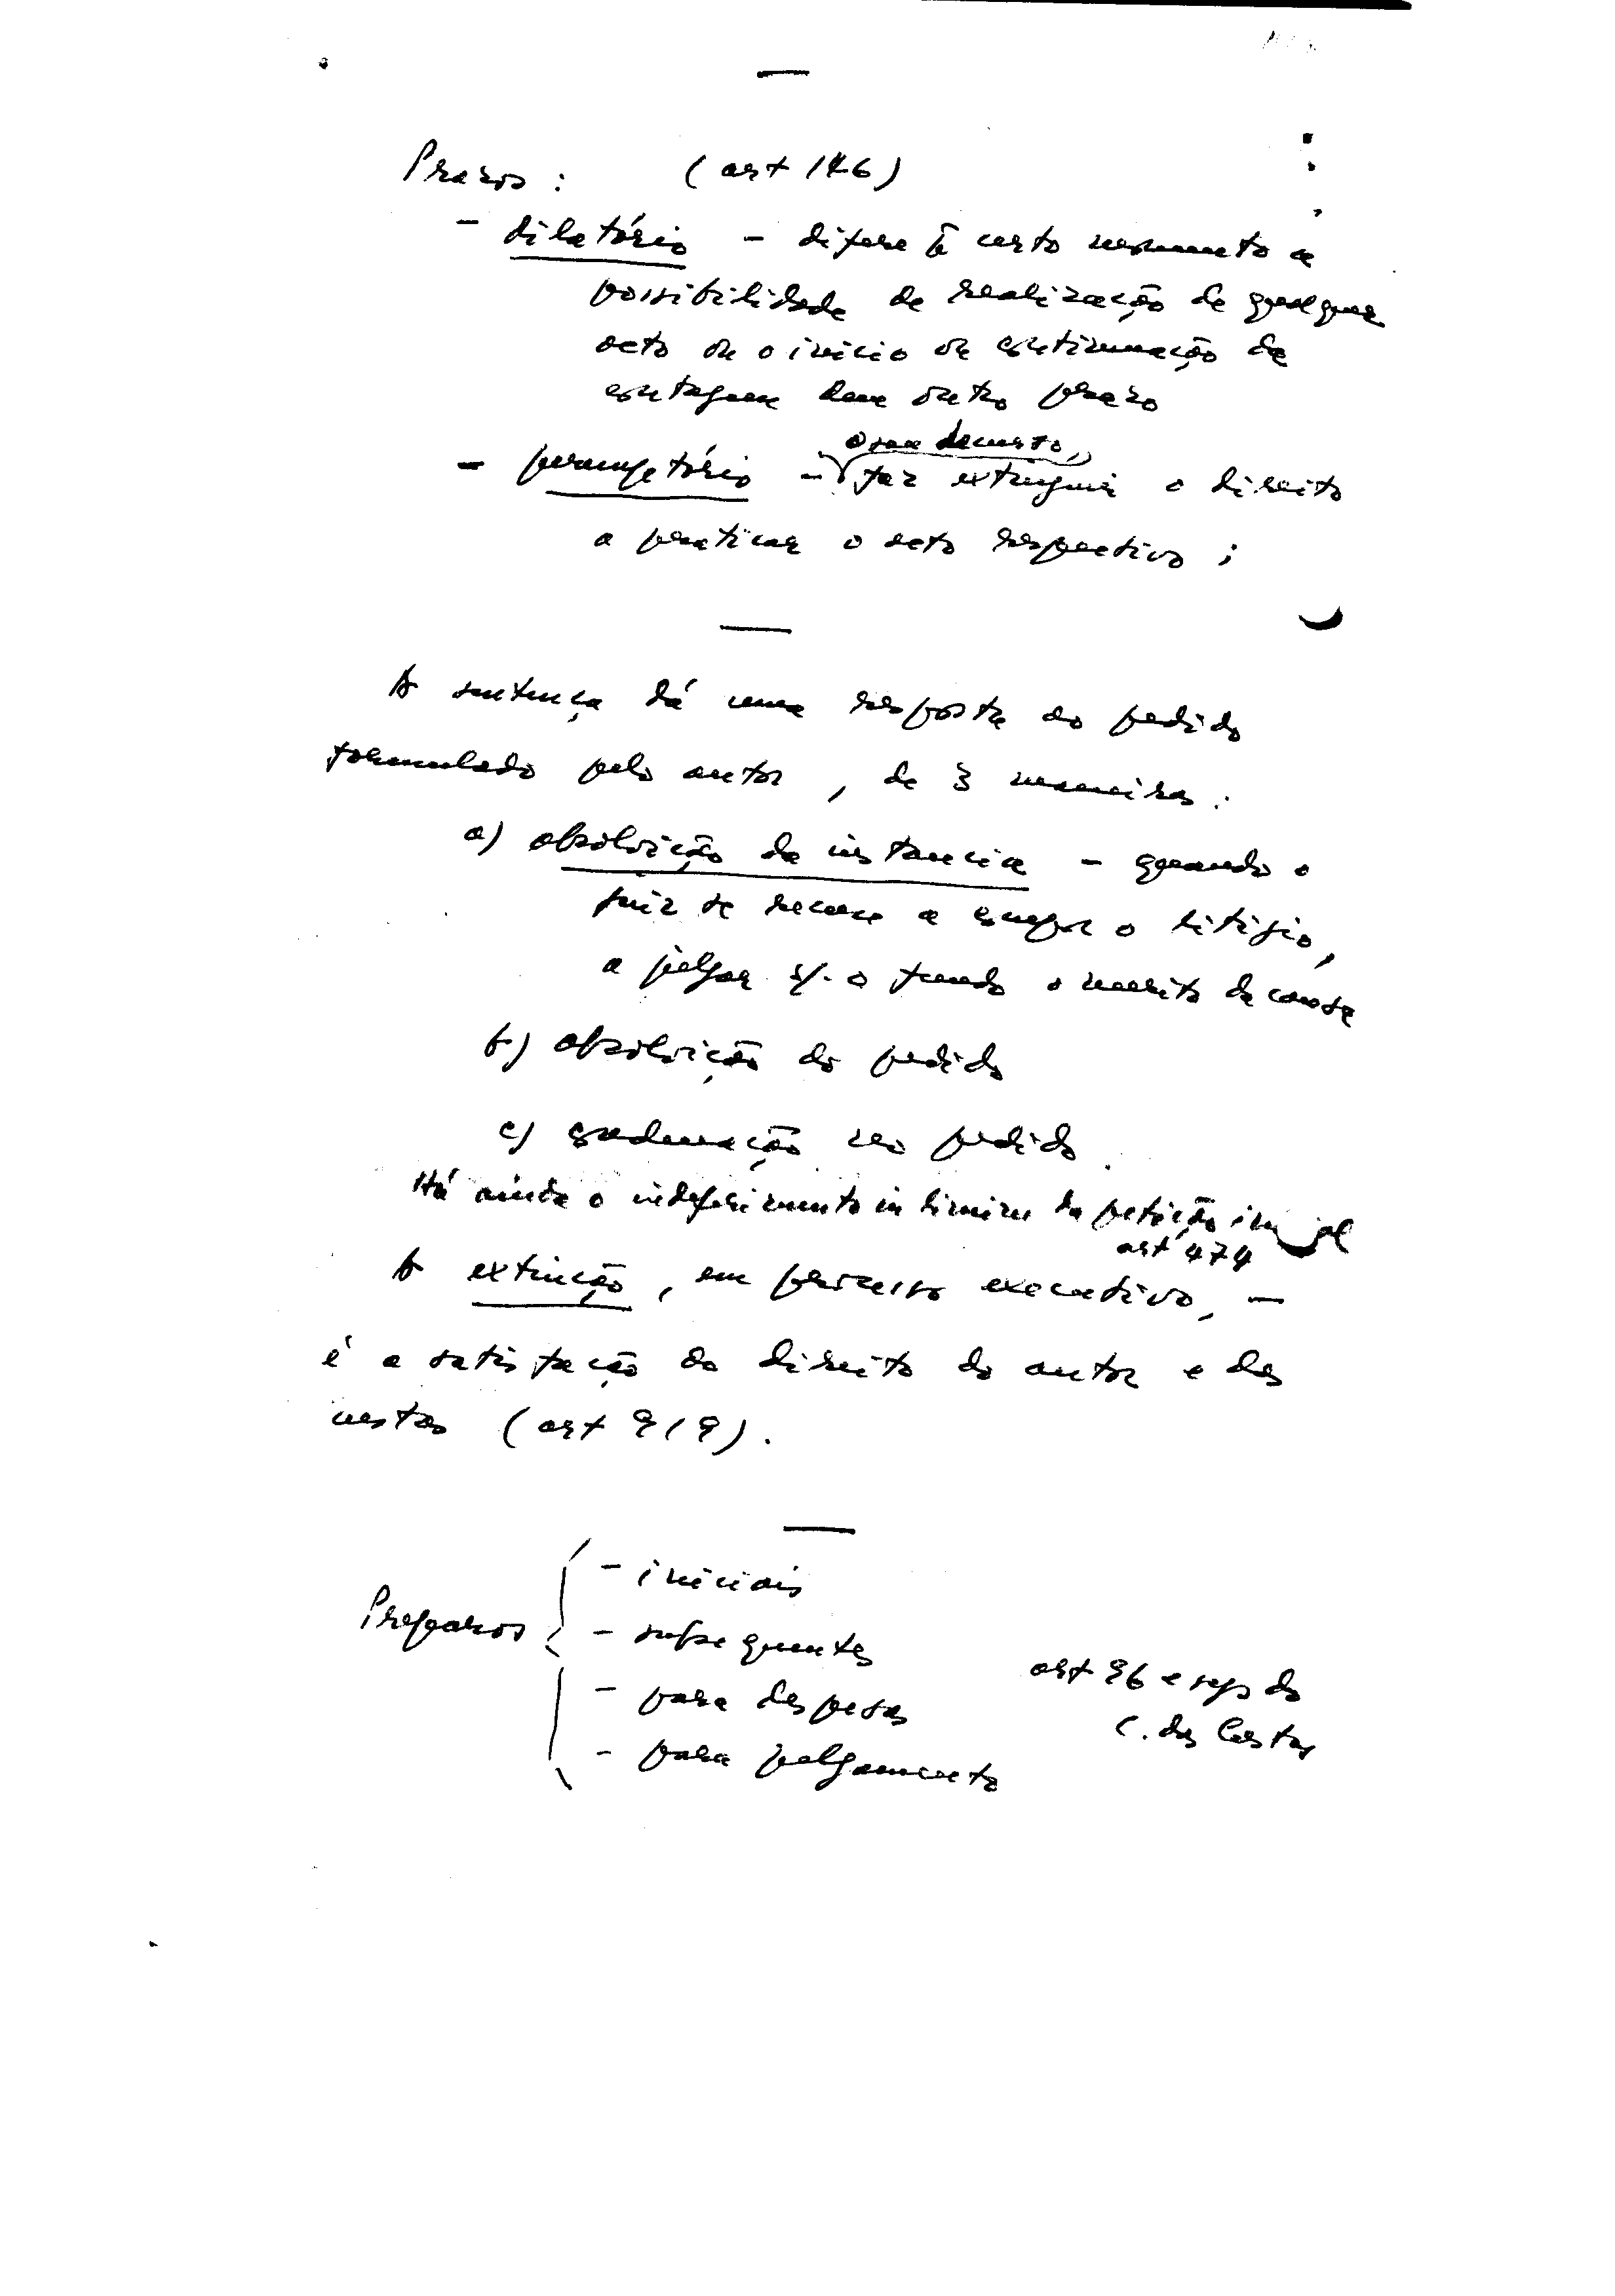 Prazos : (art 146)
- dilatório - difere p̄ certo momento a
possibilidade de realização de qualquer
acto ou o início ou continuação da
contagem dum outro prazo
o seu decurso,
- peremptório - faz extinguir o direito
a praticar o acto respectivo ;
A sentença dá uma resposta ao pedido
formulado pelo autor, de 3 maneiras :
a) absolvição da instancia - quando o
juiz se recusa a compor o litígio,
a julgar s/. o fundo o merito da causa
b) absolvição do pedido
c) condenação no pedido.
Há ainda o indeferimento in limine da petição inicial
artº 474
A extinção, em processo executivo, -
é a satisfação do direito do autor e das
custas (art 919).
Preparos - iniciais
- subsequentes
- para despesas
- para julgamento
art 96 e segs do
C. das Custas